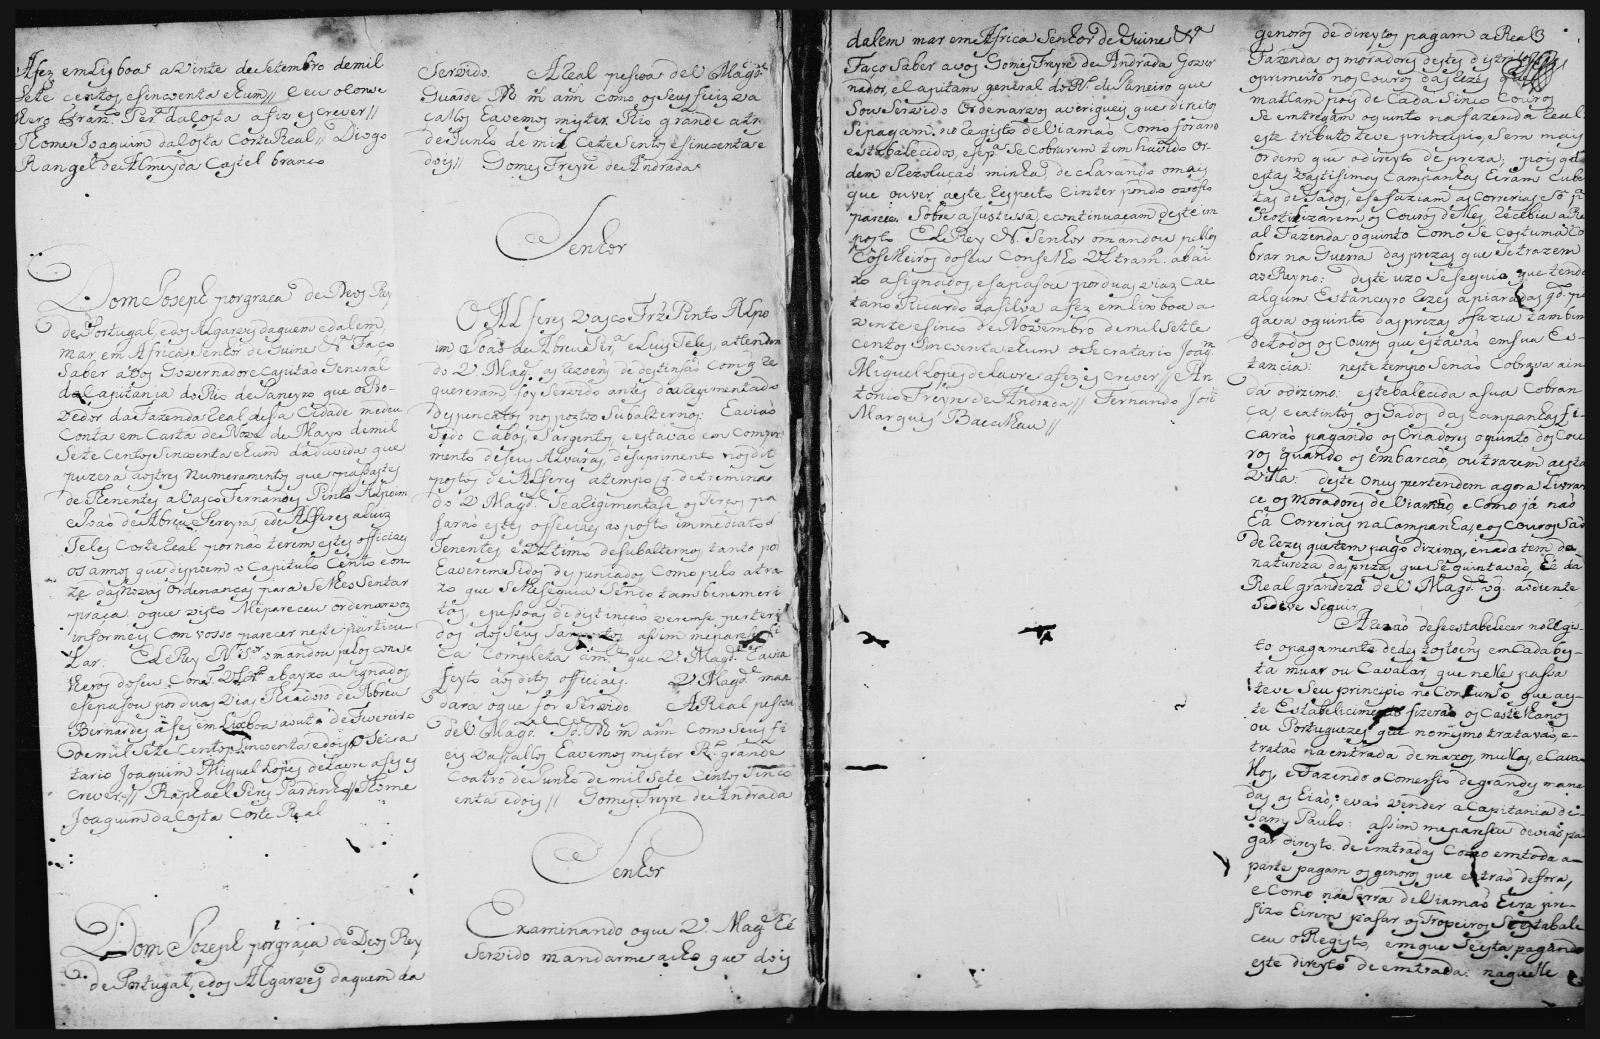 A fez em Lisboa a vinte de Setembro de mil
Sete centos, e sincoenta e hum// e eu o Conse
lhero Franc.º Per.ª da Costa a fiz escrever//
Thome Joaquim da Costa Corte Real// Diogo
Rangel de Almeyda Castel branco
Dom Joseph por graça de Deos Rey
de Portugal, e dos Algarves daquem e dalem,
mar, em Africa Senhor de Guine &ª Faço
Saber a vos Governador e Capitão General
da Capitania do Rio de Janeyro que o Pro-
vedor da Fazenda Real dessa Cidade me deu
Conta em Carta de Nove de Mayo de mil
Sete Centos Sincoenta e hum da duvida que
puzera aos tres numeramentos que passastes
de Thenentes a Vasco Fernandes Pinto Alpoim
e João de Abreu Pereyra, e de Alferes a Luiz
Teles Corte Real por não terem estes officiaes
os annos que dispoem o Capitulo Cento e on-
ze das Novas Ordenanças para se lhes Sentar
praça: o que visto Me pareceu ordenarvos
informeis Com vosso parecer neste particu-
Lar: El Rey N. Sr. o mandou pelos conse
lheros do seu Cons.º Ultr.º abayxo asignados
e se passou por duas vias, Theadoro de Abreu
Bernardes a fes em Lisboa a outo de Fevereiro
de mil Sete Centos Sincoenta e dois o Secre
tario Joaquim Miguel Lopes de Lavre a fes es
crever// Raphael Pires Pardinho// Thome
Joaquim da Costa Corte Real
Dom Jozeph por graça de Deos Rey
de Portugal, e dos Algarves daquem da
Servido. A Real pesoa de V. Mag.de
Guarde D.s m. ann como os seus fieiz va
çallos havemos mister. Rio grande a tres
de Junho de mil Cete Sentos e sincoenta e
dois// Gomes Freyre de Andrada
Senhor
O Alferes Vasco Frz Pinto Alpo
im e João de Abreu Per.ª e Luis Teles, attenden
do V. Mag.de as rezoens de destinsão com q re
quereram, foy Servido antes do Regimentado
despencalos nos postos Subalternos: haviao
sido Cabos, Sargentos, e estavão em Compri
mento de seu Alvaras, de suprimento nos dit
postos de Alferes a tempo q. detreminan
do V. Mag.de Se aRegimentase os Terços pa
sarão estes officiaes ao posto immediato d
Tenentes e ultimo de subalternos, tanto por
haverem Sidos despencados Como pelo atra
zo que Se lhe Seguia Sendo tambem emeri
tas, e pessoas de distinção verense preteri
dos dos Seus Sargentos, assim me parece
completa a m.ce que V. Mag.de havia
feyto aos ditos officiaes. V. Mag.de man
dara o que for Servido. A Real pesoa
de V. Mag.de G.de D.s m. ann Como Seus fi
eis Vassallos havemos mister R.º grande
coatro de Junho de mil Sete centos Sinco
enta e dois// Gomes Freyre de Andrada
Senhor
Examinando o que V. Mag.de he
Servido mandarme acho que dois
dalem mar em Africa Senhor de Guine &ª
Faço Saber a vos Gomes Freyre de Andrada Gover
nador, e Capitam general do R.º de Janeiro que
Sou Servido Ordenarvos averigueis que direitos
Se pagam no Registo de Viamão Como forão
estabalecidos, e Se p.ª se cobrarem tem havido Or
dem e Rezolução minha, declarando o mais
que ouver a este Respeito e interpondo o vosso
parecer Sobre a Justissa, e continuaçam deste im
posto El Rey N. Senhor o mandou pellos
Coselheiros do seu Conselho Ultram. abai
xo asignados e se pasou por duas vias Cae
tano Ricardo da Silva a fez em Lisboa a
vinte e sinco de Novembro de mil Sette
centos Sincoenta e hum o Secratario Joaq.m
Miguel Lopes de Lavre a fez escrever// An
tonio Freyre de Andrada// Fernando Joze
Marques Bacalhau//
generos de direytos pagam a Real
Fazenda os moradores destes districtos,
o primeiro nos Couros das Rezes que
matam pois de Cada Sinco Couros
Se entregam o quinto na fazenda Real
este tributo teve principio, e Sem mais
ordem que o direyto de preza; pois q.do
estas vastissimas Campanhas Eram Cuber
tas de Gados, e se faziam as Correrias Só p.ª
Se utilizarem os Couros delles, recebia a Re
al Fazenda o quinto Como Se costuma Co
brar na Guerra das prezas que Se trazem
ao Reyno: deste uzo Se seguio, que tendo
algum Estanceyro rezes apiaradas q.do pa
gava o quinto das prezas o fazia tambem
de todos os Couros que estavão em sua Es-
tancia: neste tempo Se não Cobrava ain
da o dizimo: estabalecida a sua Cobran
ça, e extintos os Gados das Campanhas, fi-
carão pagando os Criadores o quinto dos Cou
ros quando os embarcão, ou trazem a esta
Villa: deste Onus pertendem agora livrar
ce os Moradores de Viamão, e Como já não
ha Correrias na Campanha, e os Couros São
de Rezes que tem pago dizimo, e nada tem da
natureza das prezas que Se quintavão, he da
Real grandeza de V. Mag.de o q. a diente
Se deve Seguir
A Rezão de Se estabelecer no Regis-
to o pagamento de des tostoens em Cada bes-
ta muar ou Cavalar, que nelle passa
teve Seu principio no Concurso que aes-
te Estabelicimento fizerão os Castelhanos
ou Portuguezes que no mesmo tratavão, e
tratão na entrada de maxos, mullas, e Cava-
llos, e Fazendo o Comersio de grandes mana
das, as hião, e vão vender a Capitania de
Sam Paulo: assim me pareseu devião pa
gar direyto de emtradas Como em toda a-
parte pagam os generos que entrão de fora,
e Como na Serra de Viamão hera pre-
sizo hirem pasar os Tropeiros Se estabale
ceu o Registo, em que Se esta pagando
este direyto de emtrada. naquelle